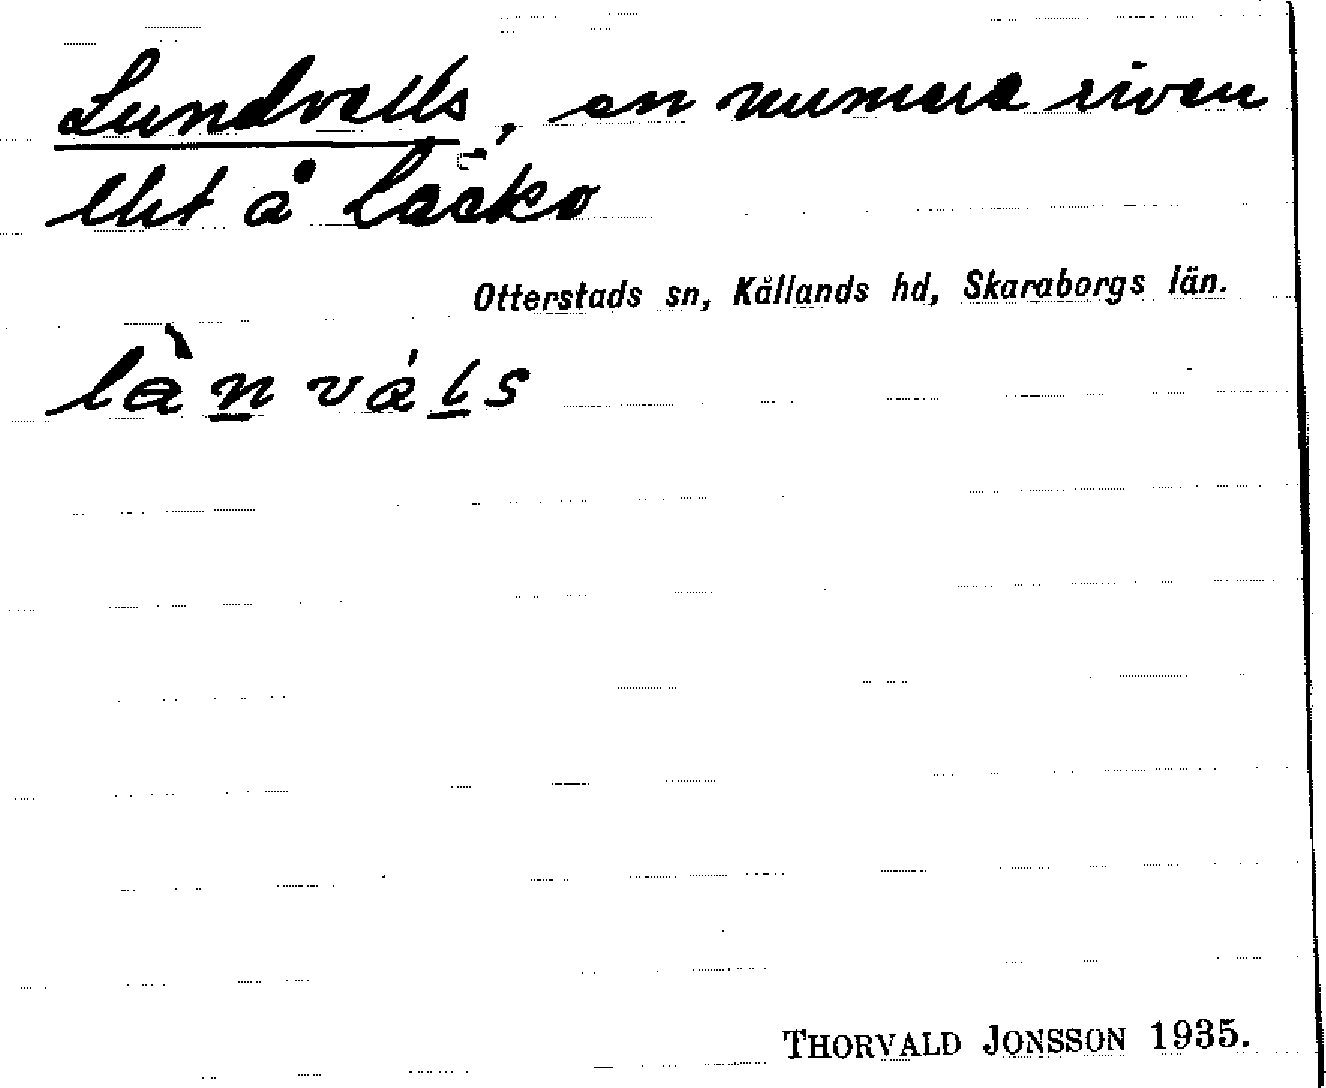 Lundvalls, en numera riven
lht å Läckö
Otterstads sn, Kållands hd, Skaraborgs län.
lànváls
THORVALD JONSSON 1935.